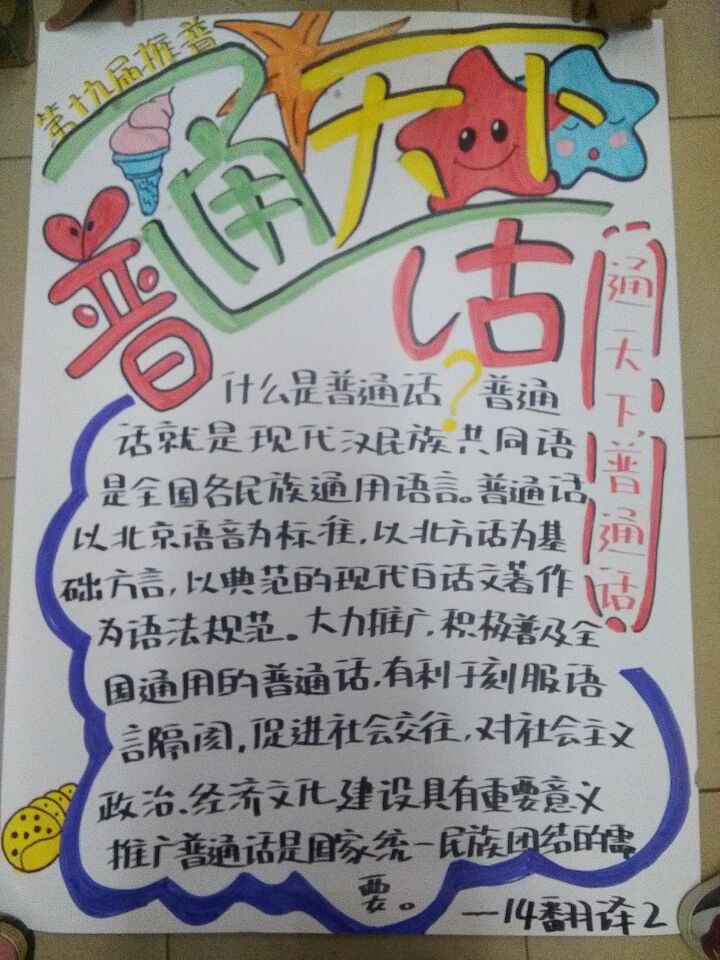 第十九届推普
通天下
普 话
通天下,普通话
什么是普通话？普通
话就是现代汉民族共同语
是全国各民族通用语言。普通话
以北京语音为标准,以北方话为基
础方言,以典范的现代白话文著作
为语法规范。大力推广,积极普及全
国通用的普通话,有利于刻服语
言隔阂,促进社会交往,对社会主义
政治、经济文化建设具有重要意义
推广普通话是国家统一民族团结的需
要。
—14翻译2